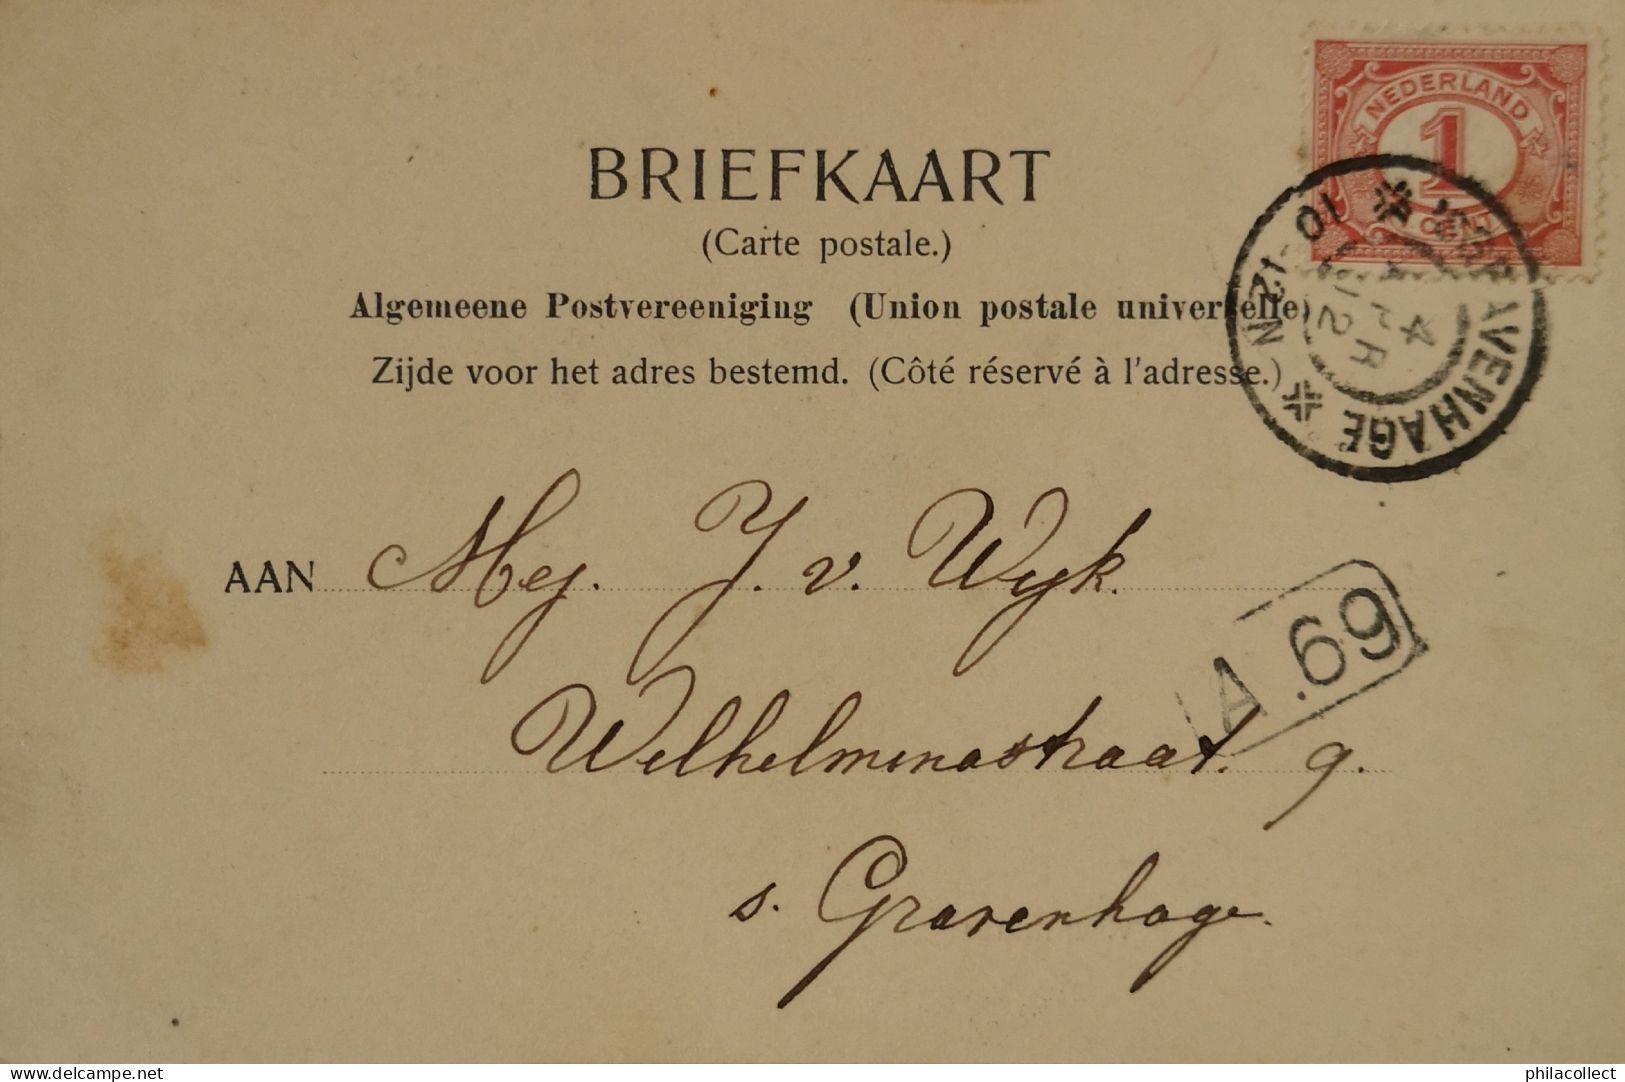 NEDERLAND
1
CENT
BRIEFKAART
(Carte postale.)
Algemeene Postvereeniging (Union postale universelle)
Zijde voor het adres bestemd. (Côté réservé à l'adresse.)
'SGRAVENHAGE
4 APR 02
10 12-1N
AAN Mej. J. v. Wijk.
A.69
Wilhelminastraat. 9.
s. Gravenhage.
Delcampe.net
philacollect